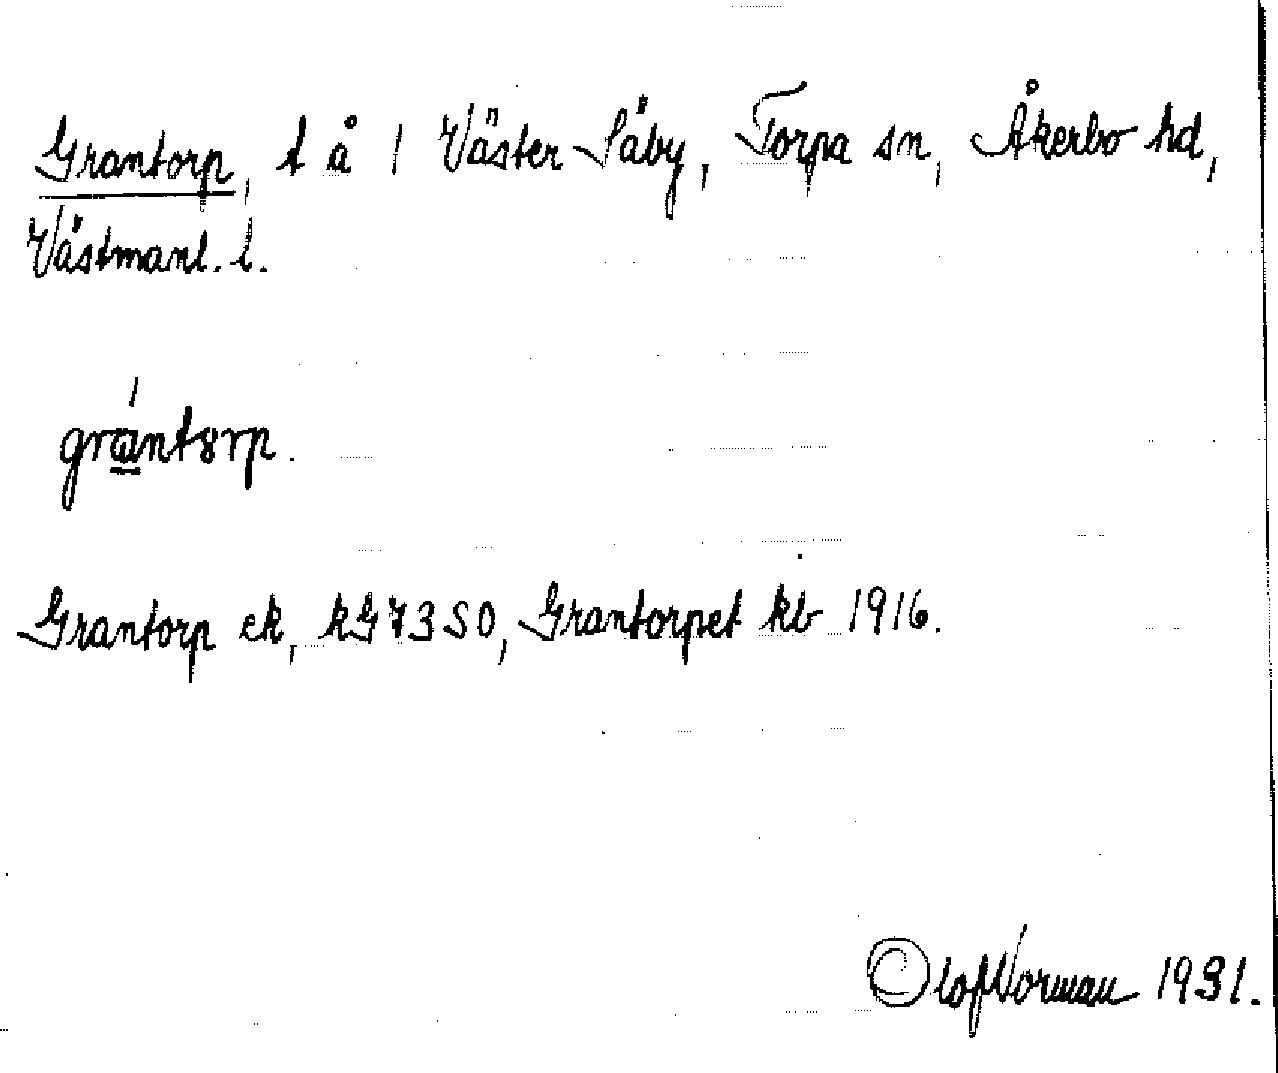 Grantorp, t å 1 Väster Säby, Torpa sn, Åkerbo hd,
Västmanl. l.
grantorp.
Grantorp ek, kG73SO, Grantorpet kb 1916.
Olof Norman 1931.